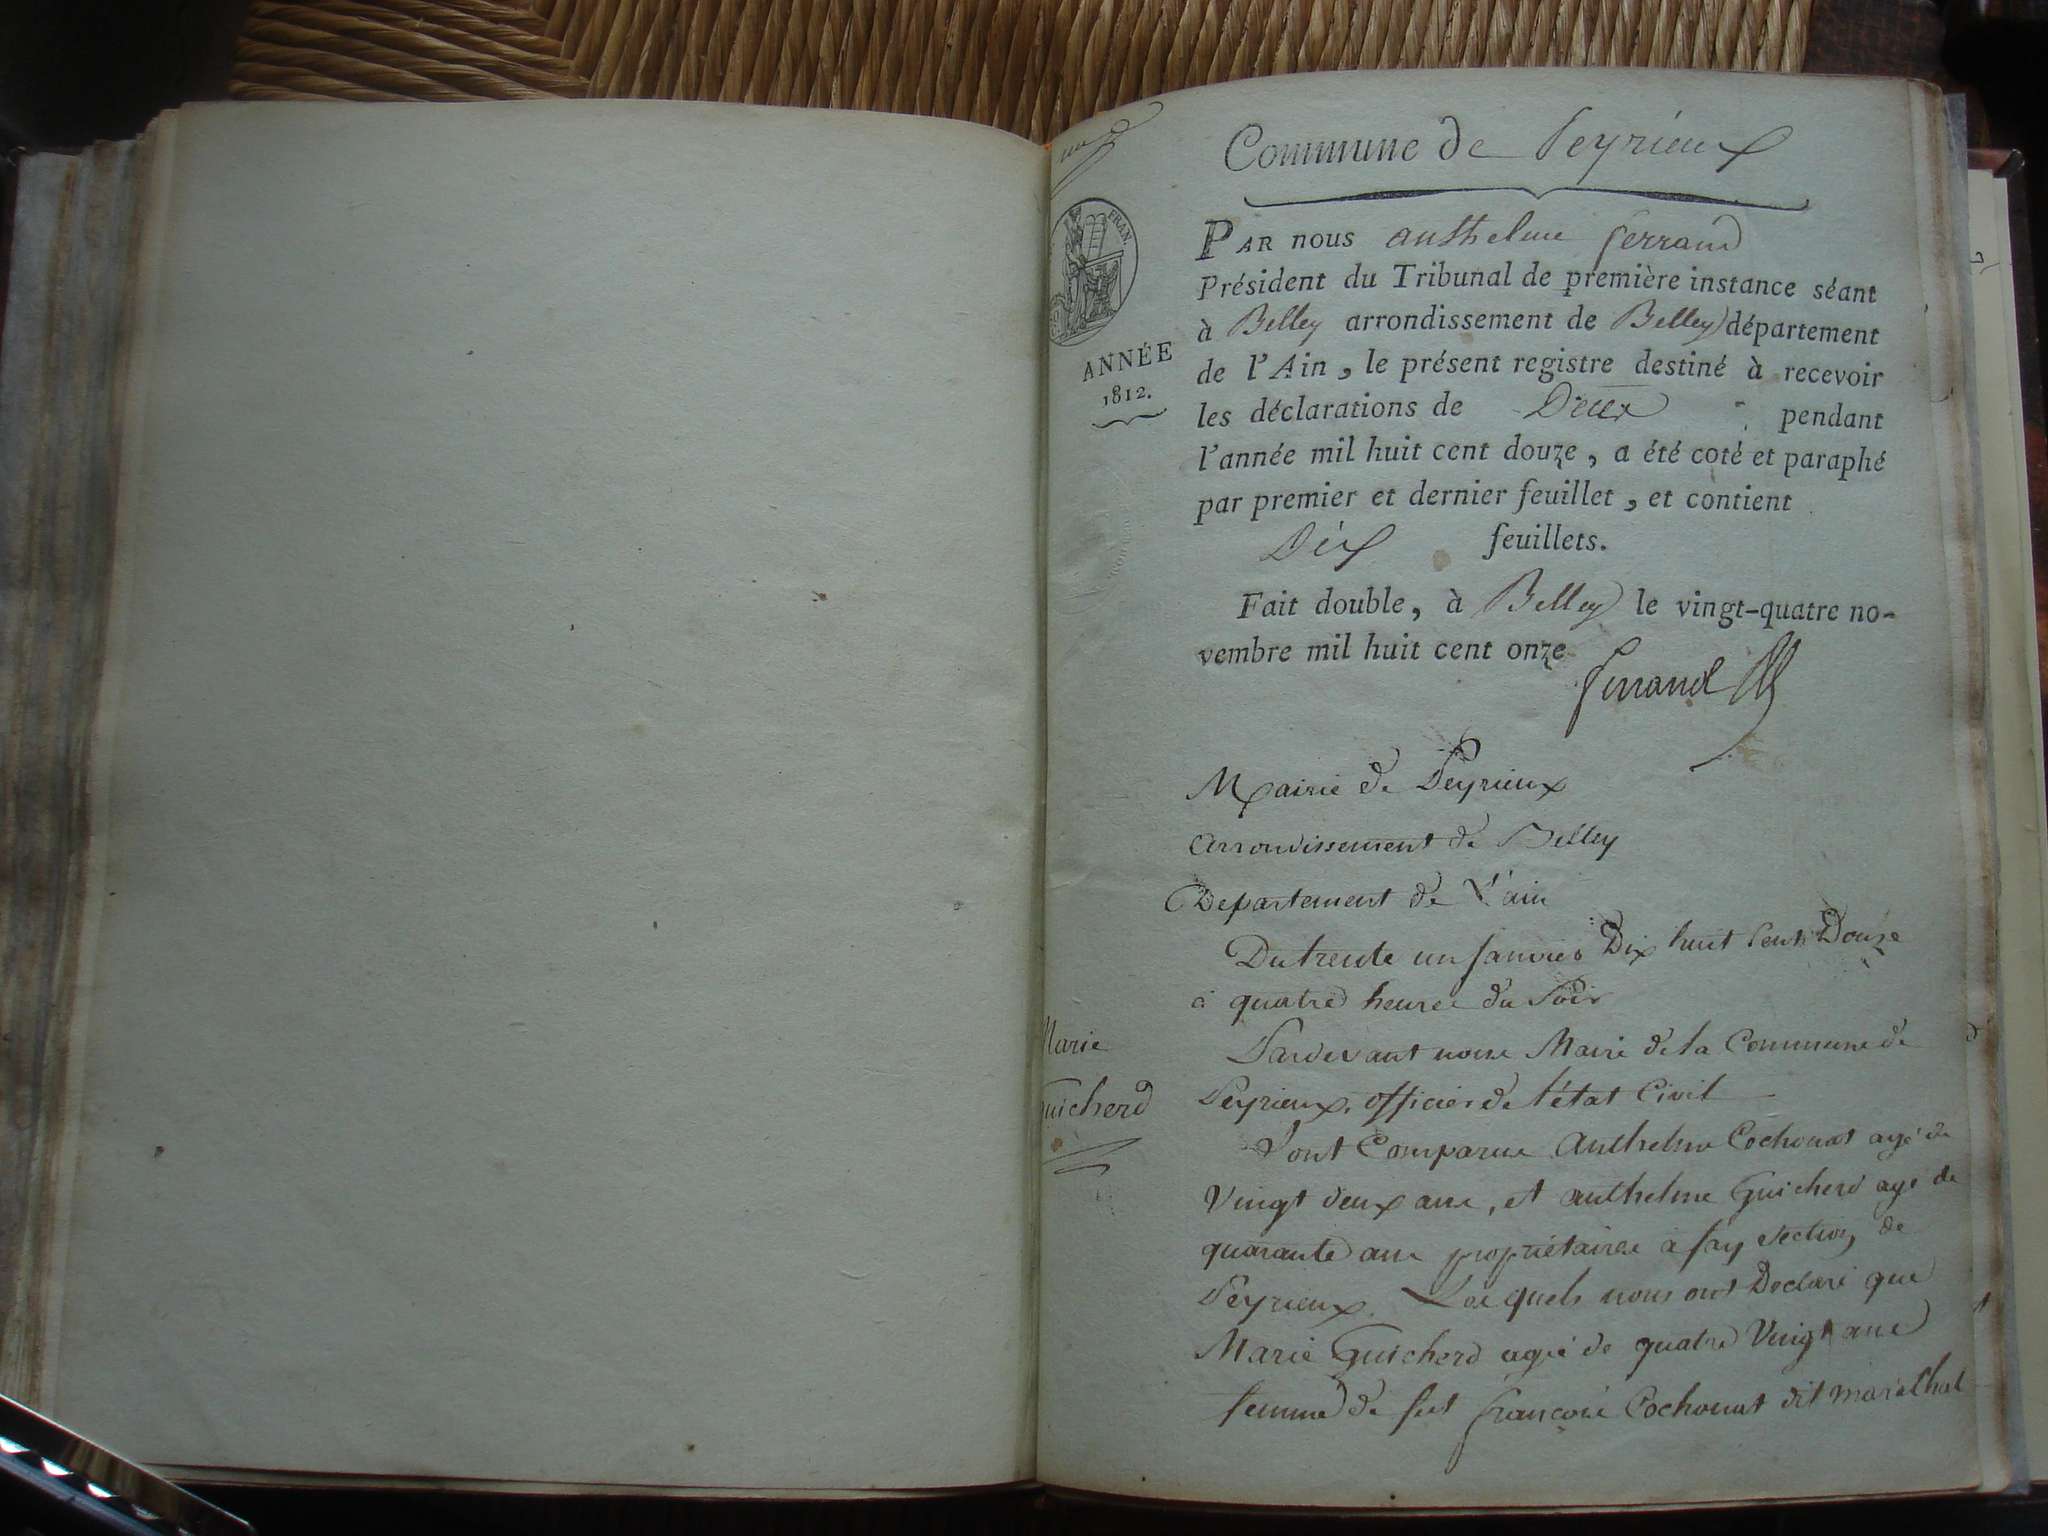 un
Commune de Peyrieux
FRAN.
ANNÉE
1812.
PAR nous anthelme ferrand
Président du Tribunal de première instance séant
à Belley arrondissement de Belley département
de l'Ain, le présent registre destiné à recevoir
les déclarations de Décèx pendant
l'année mil huit cent douze, a été coté et paraphé
par premier et dernier feuillet, et contient
Dix feuillets.
Fait double, à Belley le vingt-quatre no-
vembre mil huit cent onze
ferrand
Mairie de Peyrieux
arrondissement de Belley
Departement de L'ain
Du trente un Janvier Dix huit Cent Douze
à quatre heures du Soir
Marie
Guicherd
Pardevant nous Maire de la Commune de
Peyrieux, officier de l'état Civil
Sont Comparus Anthelme Cochonat agé de
Vingt deux ans, et anthelme Guicherd agé de
quarante ans propriétaires à fay Section de
Peyrieux. Les quels nous ont Declaré que
Marie Guicherd agée de quatre Vingt ans
femme de fut françois Cochonat dit maréchal